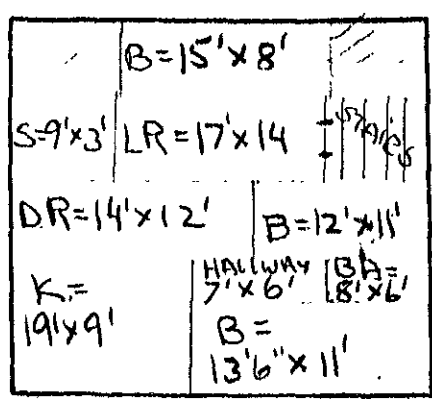 B=15'x8'
S=9'x3'
LR=17'x14
STAIRS
D.R=14'x12'
B=12'x11'
K=
19'x9'
HALLWAY
7'x6'
BA=
8'x6'
B=
13'6"x11'